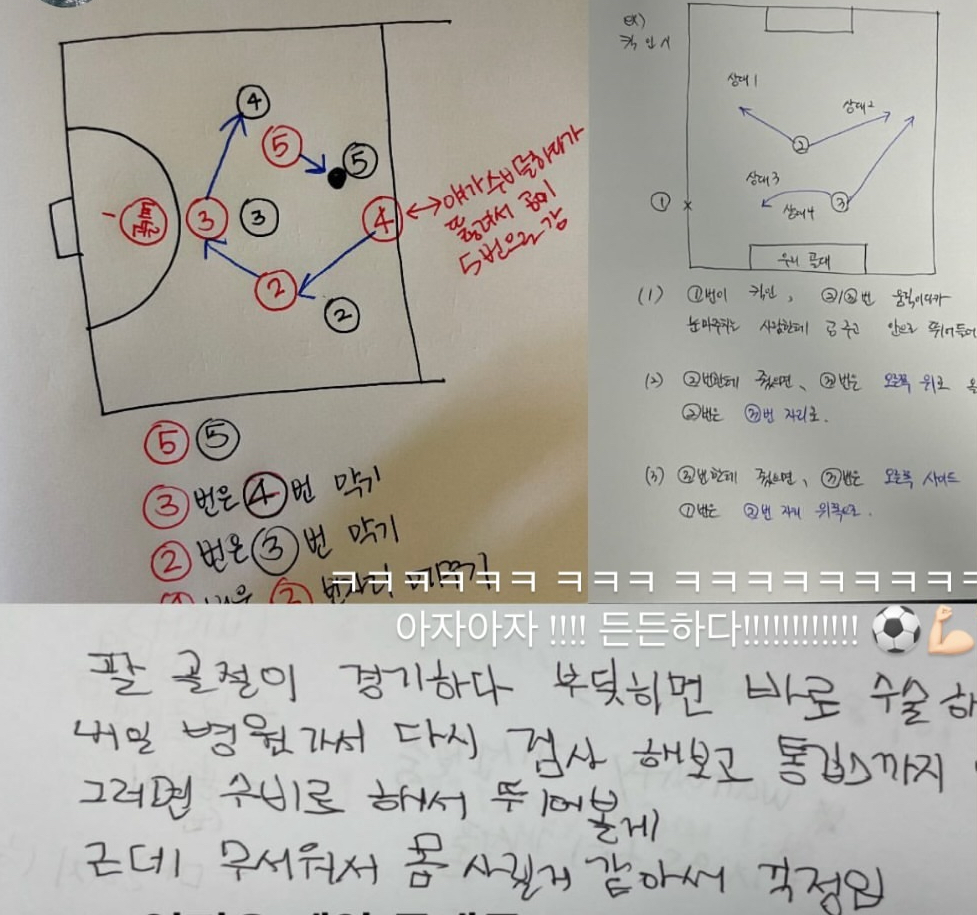 4
5
5
3
3
4
2
2
얘가 수비 덜하다가
뚫려서 공이
5번으로 감
5 5
3번은 4번 막기
2번은 3번 막기
ex)
킥인시
상대1
상대2
2
상대3
1
3
상대4
우리 골대
(1) ①번이 킥인, ②/③번 움직이다가
눈마주치는 사람한테 공 주고 안으로 뛰어들어
(2) ②번한테 줬으면, ③번은 오른쪽 위로
②번은 ③번 자리로.
(3) ③번한테 줬으면, ③번은 오른쪽 사이드
①번은 ②번 자리 위쪽으로.
ㅋㅋㅋㅋㅋ ㅋㅋㅋ ㅋㅋㅋㅋㅋㅋㅋㅋㅋ
아자아자 !!!! 든든하다!!!!!!!!!!!!! ⚽💪🏻
팔 골절이 경기하다 부딪히면 바로 수술 하
내일 병원가서 다시 검사 해보고 통깁스까지
그러면 수비로 해서 뛰어볼게
근데 무서워서 몸 사릴거 같아서 걱정임